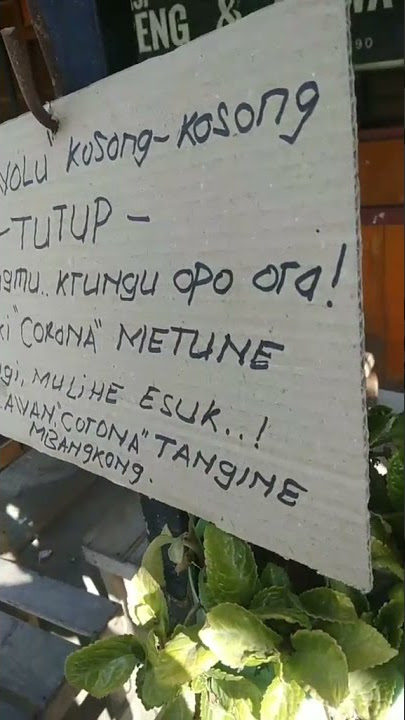 ENG &
90
VOLU "KOSONG-KOSONG
-TUTUP-
gmu.. krungu opo ora!
ki "CORONA" METUNE
gi, MULIHE ESUK..!
AWAN "COrONA" TANGINE
MBANGKONG.